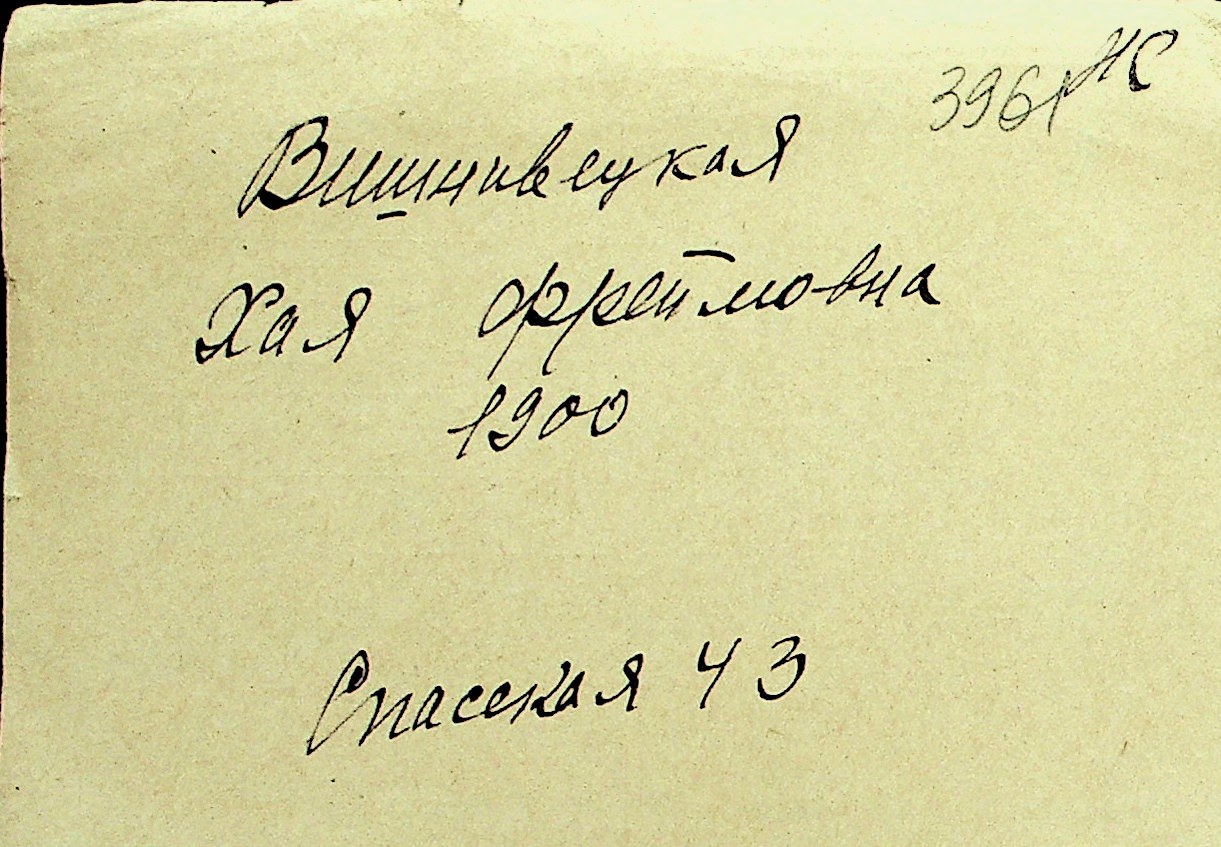 3961 НС
Вишнивецкая
Хая Фреймовна
1900
Спасская 43